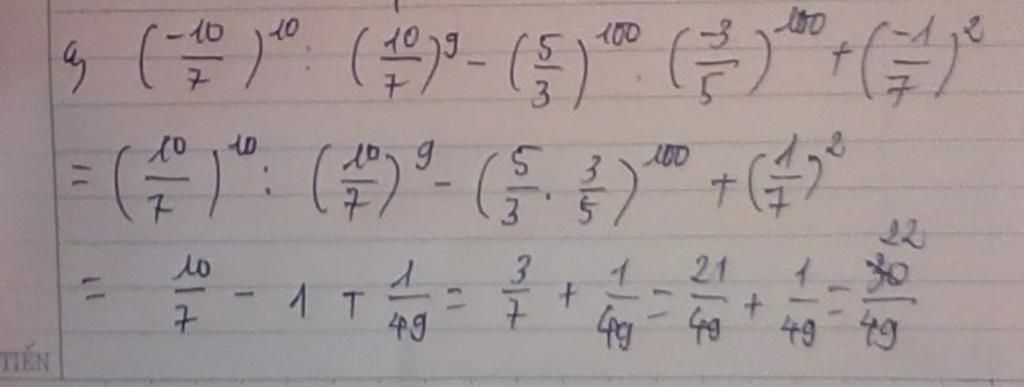 a) (-10/7)^10 : (10/7)^9 - (5/3)^100 . (-3/5)^100 + (-1/7)^2
= (10/7)^10 : (10/7)^9 - (5/3 . 3/5)^100 + (1/7)^2
= 10/7 - 1 + 1/49 = 3/7 + 1/49 = 21/49 + 1/49 = 22/49
TIẾN